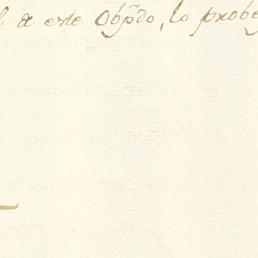 l de este Obp̃do, lo probe